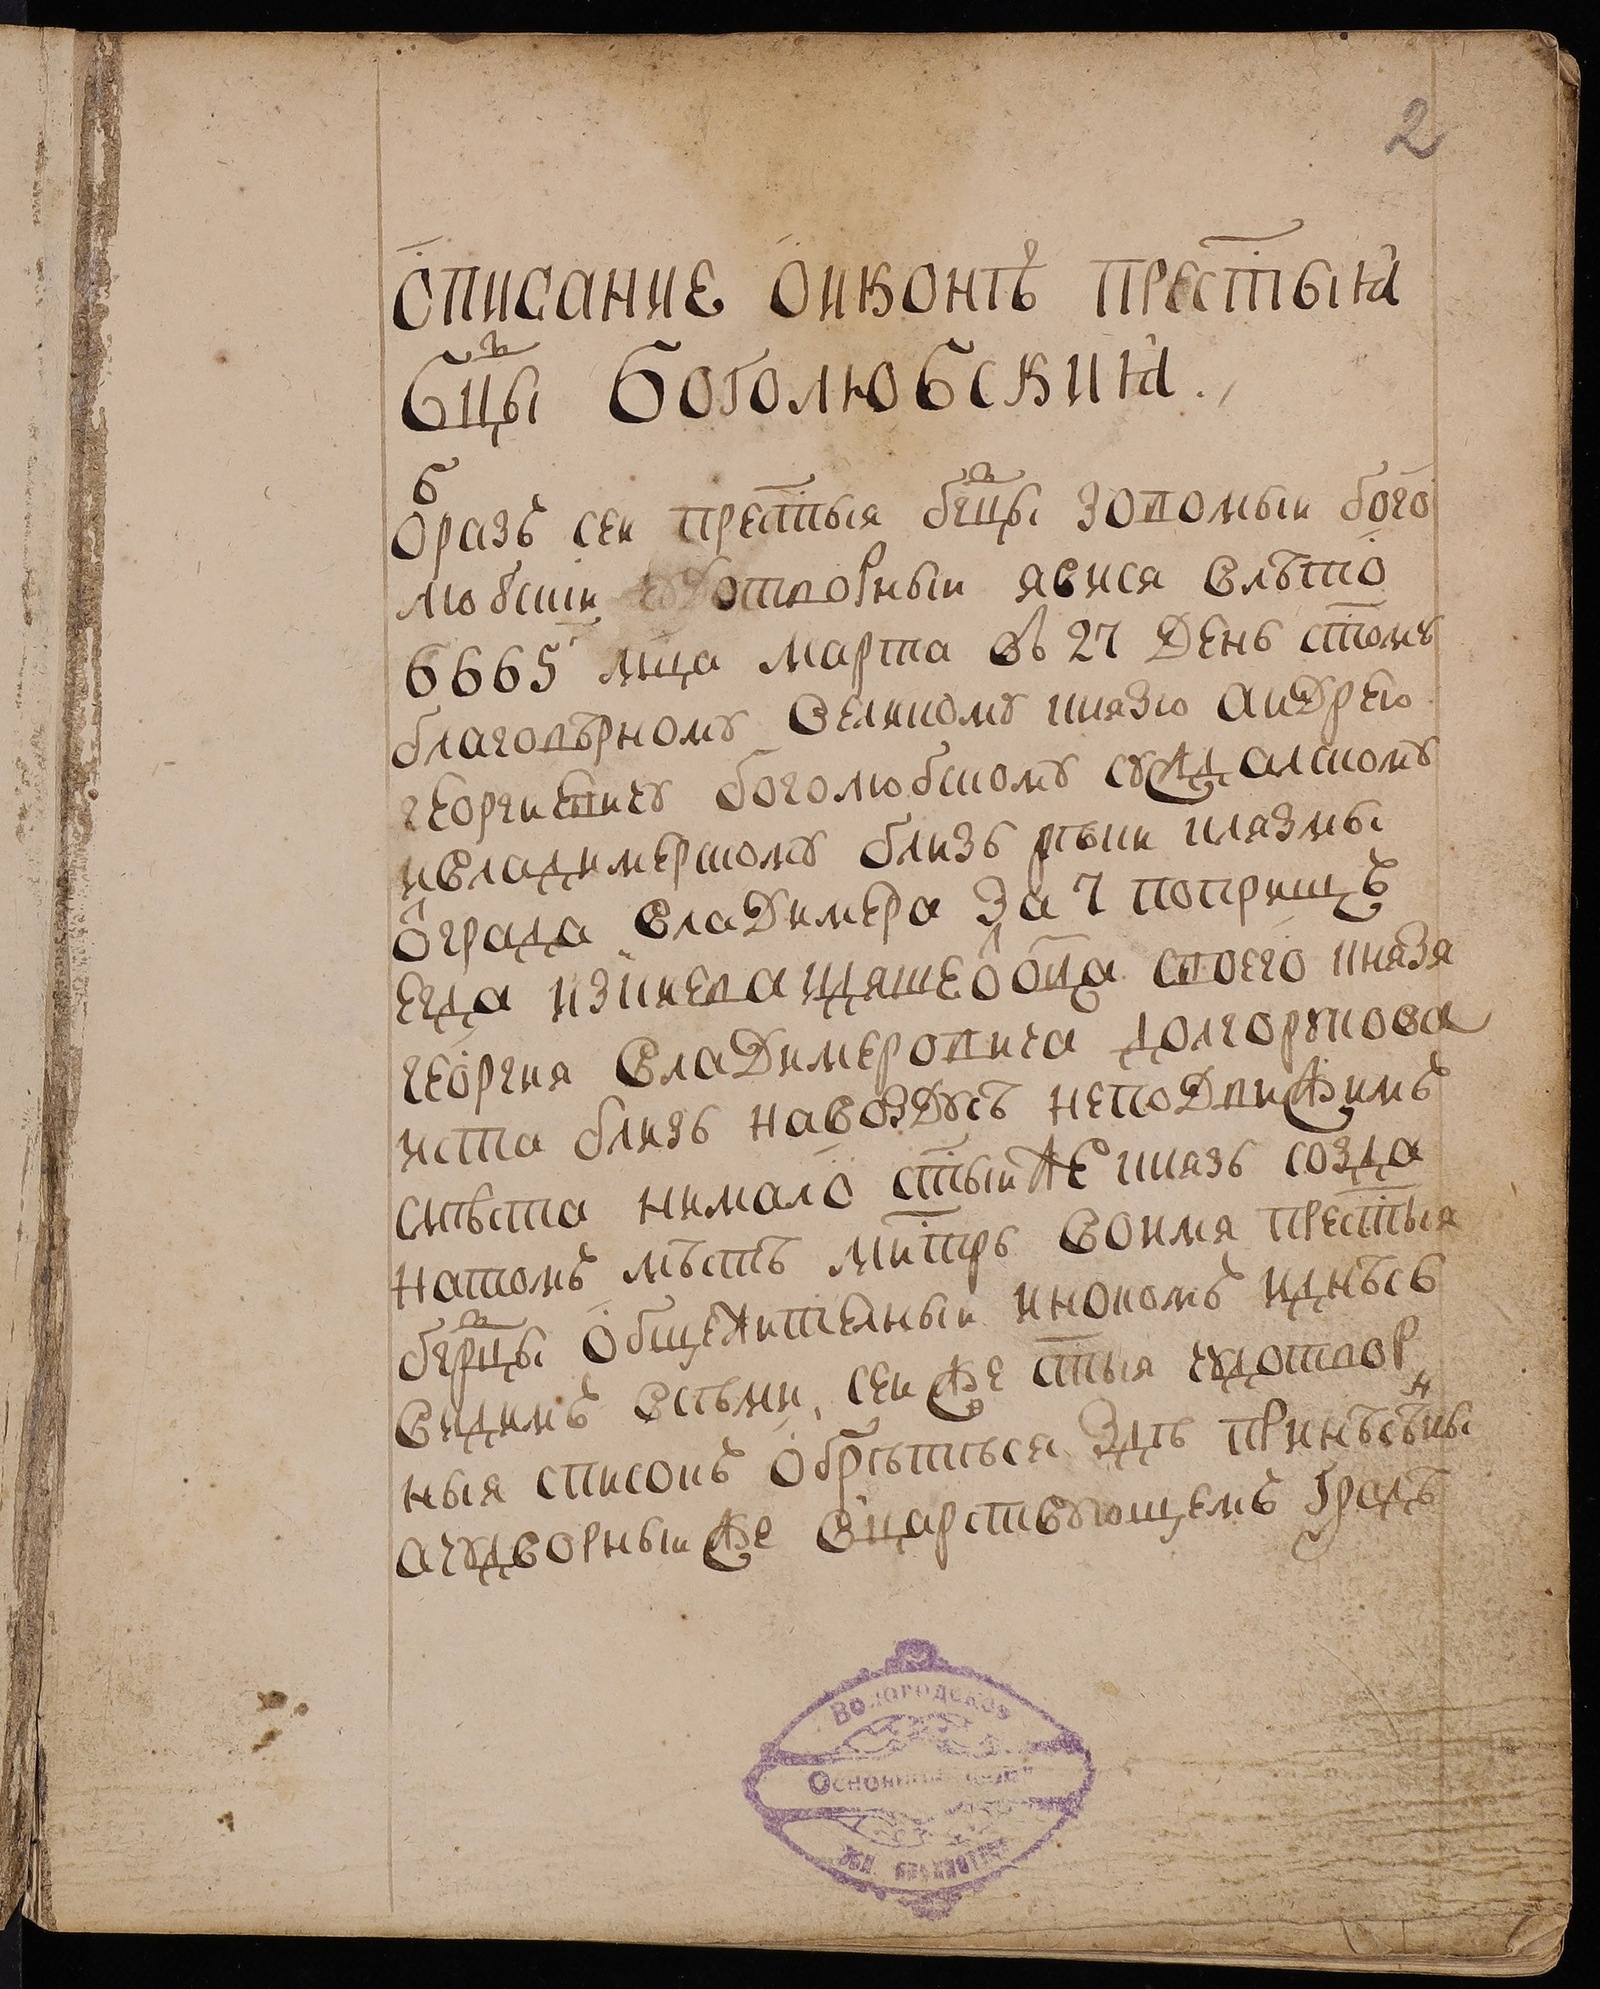 2
Описание ѡиконѣ прес͠тыꙗ
Бц҃ы Боголюбскиꙗ.
Ѻбразъ сеи прес͠тыя бг҃цы зовомыи бого
любскіи чюдотворный явися влѣто
6665 мц҃а марта въ 27 день ст͠омꙋ
благовѣрномꙋ великомꙋ князю андрею
георгиевичꙋ боголюбскомꙋ сꙋждалскомꙋ
ивладимерскомꙋ близъ рѣки клязмы
ѿграда владимера за 7 поприщъ
егда изкиева идяше ѿ оц҃а своего князя
георгия владимеровича долгорꙋкова
иста близъ навоздꙋсѣ неподвижимъ
смѣста нимало ст͠ыи же князь созда
натомъ мѣстѣ мн͠трь воимя прес͠тыя
бг҃рцы общежителныи инокомъ иднѣсь
видимъ всѣми, сеи же ст͠ыя чꙋдотвор
ныя списокъ обрѣтѣся здѣ принѣсѣны
ачꙋдворныи же вцарствꙋющемъ градѣ
Вологодская
Основной фонд